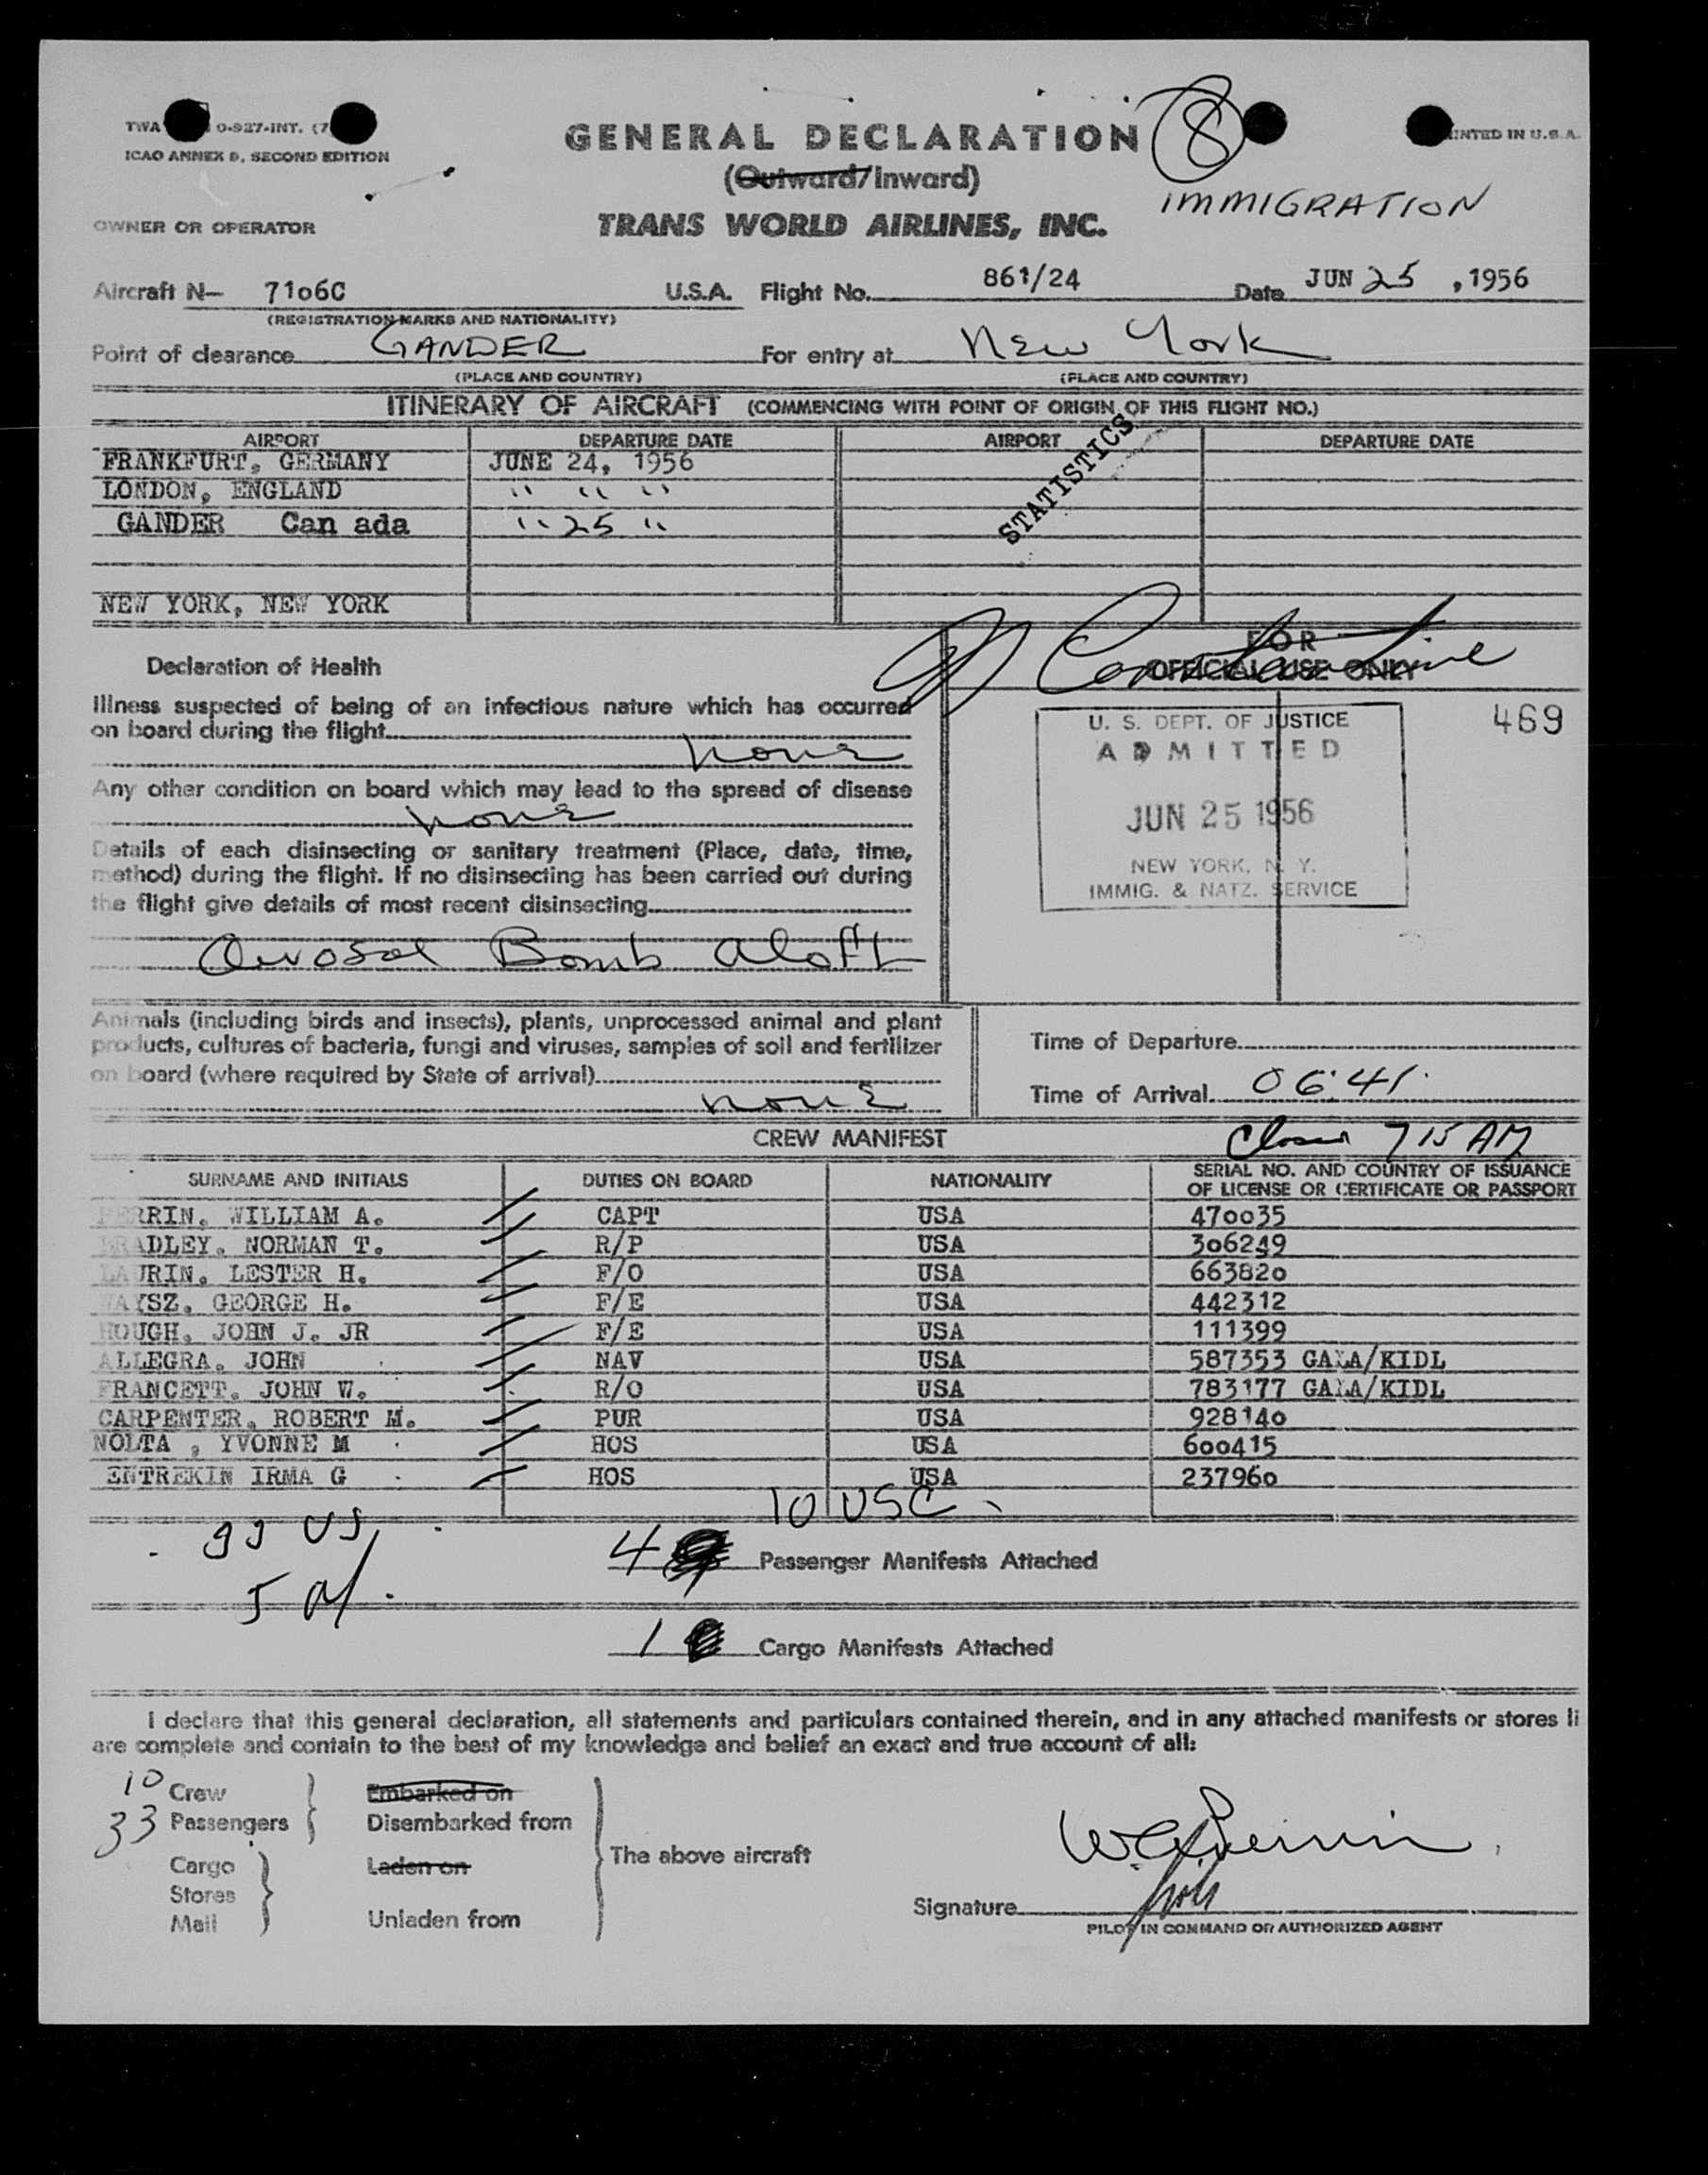 TWA 0-927-INT. (7
ICAO ANNEX 9, SECOND EDITION
GENERAL DECLARATION
8
PRINTED IN U.S.A.
(Outward/Inward)
IMMIGRATION
OWNER OR OPERATOR
TRANS WORLD AIRLINES, INC.
Aircraft N- 7106C U.S.A. Flight No. 861/24 Date JUN 25 , 1956
(REGISTRATION MARKS AND NATIONALITY)
Point of clearance GANDER For entry at New York
(PLACE AND COUNTRY) (PLACE AND COUNTRY)
ITINERARY OF AIRCRAFT (COMMENCING WITH POINT OF ORIGIN OF THIS FLIGHT NO.)
AIRPORT DEPARTURE DATE AIRPORT DEPARTURE DATE
FRANKFURT, GERMANY JUNE 24, 1956
LONDON, ENGLAND " " "
GANDER Can ada " 25 "
STATISTICS
NEW YORK, NEW YORK
Declaration of Health
FOR
OFFICIAL USE ONLY
Constantine
Illness suspected of being of an infectious nature which has occurred
on board during the flight
none
Any other condition on board which may lead to the spread of disease
none
Details of each disinsecting or sanitary treatment (Place, date, time,
method) during the flight. If no disinsecting has been carried out during
the flight give details of most recent disinsecting
Aerosol Bomb Aloft
U. S. DEPT. OF JUSTICE
ADMITTED
JUN 25 1956
NEW YORK, N. Y.
IMMIG. & NATZ. SERVICE
469
Animals (including birds and insects), plants, unprocessed animal and plant
products, cultures of bacteria, fungi and viruses, samples of soil and fertilizer
on board (where required by State of arrival)
none
Time of Departure
Time of Arrival 06:41
CREW MANIFEST
Closed 715 AM
SURNAME AND INITIALS DUTIES ON BOARD NATIONALITY SERIAL NO. AND COUNTRY OF ISSUANCE
OF LICENSE OR CERTIFICATE OR PASSPORT
PERRIN, WILLIAM A. CAPT USA 470035
BRADLEY, NORMAN T. R/P USA 306249
LAURIN, LESTER H. F/O USA 663820
WAYSZ, GEORGE H. F/E USA 442312
HOUGH, JOHN J. JR F/E USA 111399
ALLEGRA, JOHN NAV USA 587353 GALA/KIDL
FRANCETT, JOHN W. R/O USA 783177 GALA/KIDL
CARPENTER, ROBERT M. PUR USA 928140
NOLTA , YVONNE M HOS USA 600415
ENTREKIN IRMA G HOS USA 237960
10 USC
US
4 Passenger Manifests Attached
5
1 Cargo Manifests Attached
I declare that this general declaration, all statements and particulars contained therein, and in any attached manifests or stores li
are complete and contain to the best of my knowledge and belief an exact and true account of all:
10 Crew
33 Passengers
Cargo
Stores
Mail
Embarked on
Disembarked from
Laden on
Unladen from
The above aircraft
W A Perrin
Signature
PILOT IN COMMAND OR AUTHORIZED AGENT